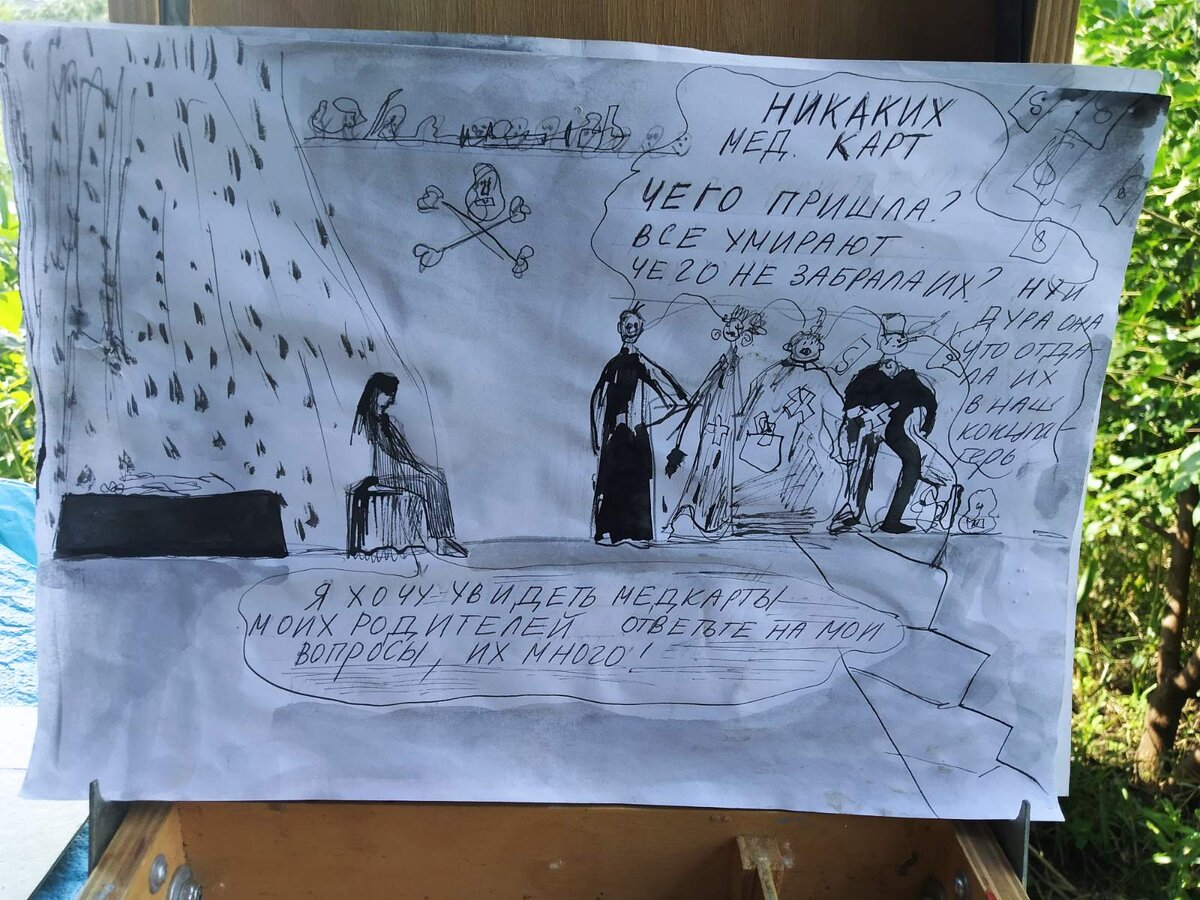 НИКАКИХ
МЕД. КАРТ
ЧЕГО ПРИШЛА?
ВСЕ УМИРАЮТ
ЧЕГО НЕ ЗАБРАЛА ИХ? НУ И
ДУРА ОНА
ЧТО ОТДА-
ЛА ИХ
В НАШ
Я ХОЧУ УВИДЕТЬ МЕДКАРТЫ
МОИХ РОДИТЕЛЕЙ ОТВЕТЬТЕ НА МОИ
ВОПРОСЫ, ИХ МНОГО!